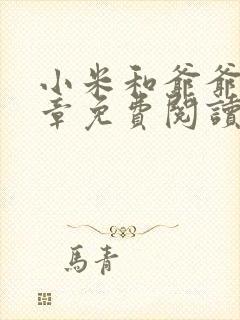 小米和爺爺
章免費閱讀
馬青